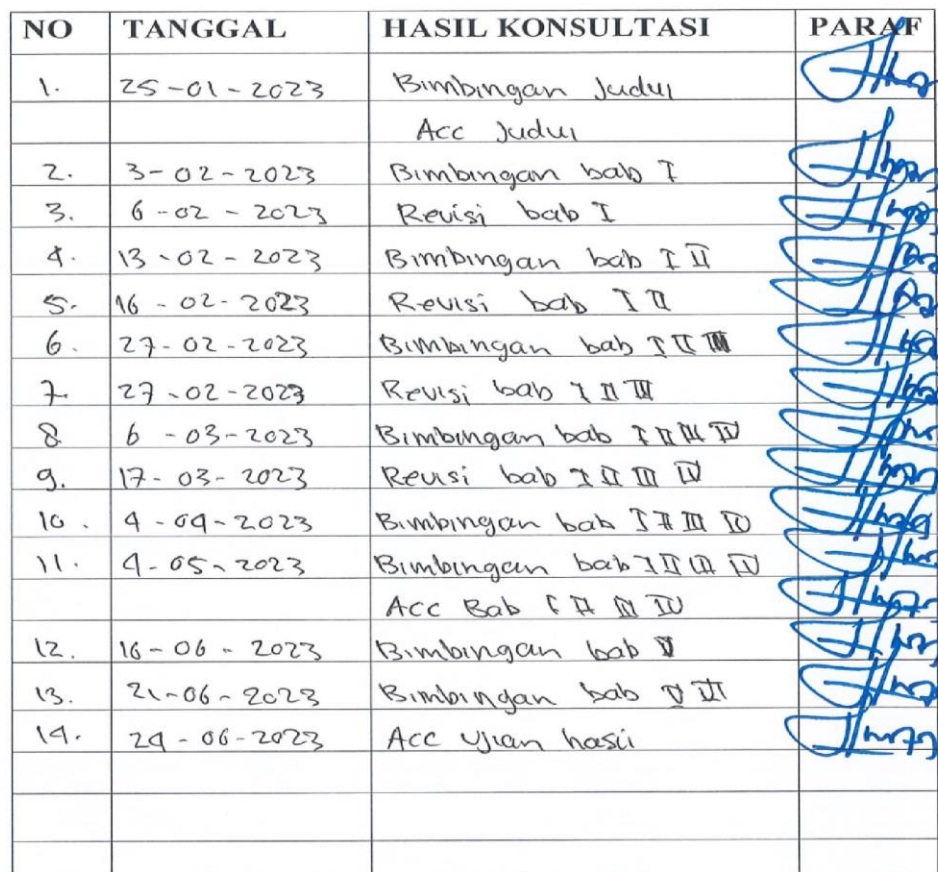 NO TANGGAL HASIL KONSULTASI PARAF
1. 25-01-2023 Bimbingan Judul
Acc Judul
2. 3-02-2023 Bimbingan bab I
3. 6-02-2023 Revisi bab I
4. 13-02-2023 Bimbingan bab I II
5. 16-02-2023 Revisi bab I II
6. 27-02-2023 Bimbingan bab I II III
7. 27-02-2023 Revisi bab I II III
8 6-03-2023 Bimbingan bab I II III IV
9. 17-03-2023 Revisi bab I II III IV
10. 4-04-2023 Bimbingan bab I II III IV
11. 4-05-2023 Bimbingan bab I II III IV
Acc Bab I II III IV
12. 16-06-2023 Bimbingan bab V
13. 21-06-2023 Bimbingan bab V VI
14. 24-06-2023 Acc Ujian hasil